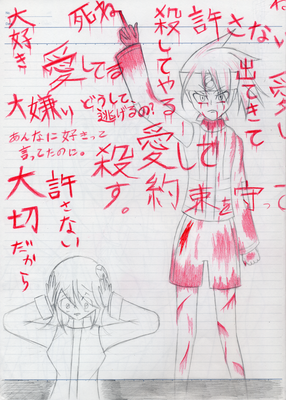 大好き
死ね
愛してる
大嫌い
どうして、
逃げるの!
あんなに好きって
言ってたのに。
許さない
大切だから
殺してやる
殺す。
許さない
愛して
出てきて
約束を守って
ね
愛して